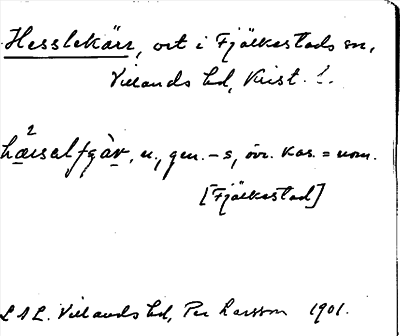 Hesslekärr, ort i Fjälkestads sn,
Villands hd, Krist. l.
2
n., gen. -s, övr. kas. = nom.
[Fjälkestad]
Villands hd, Per Larsson 1901.